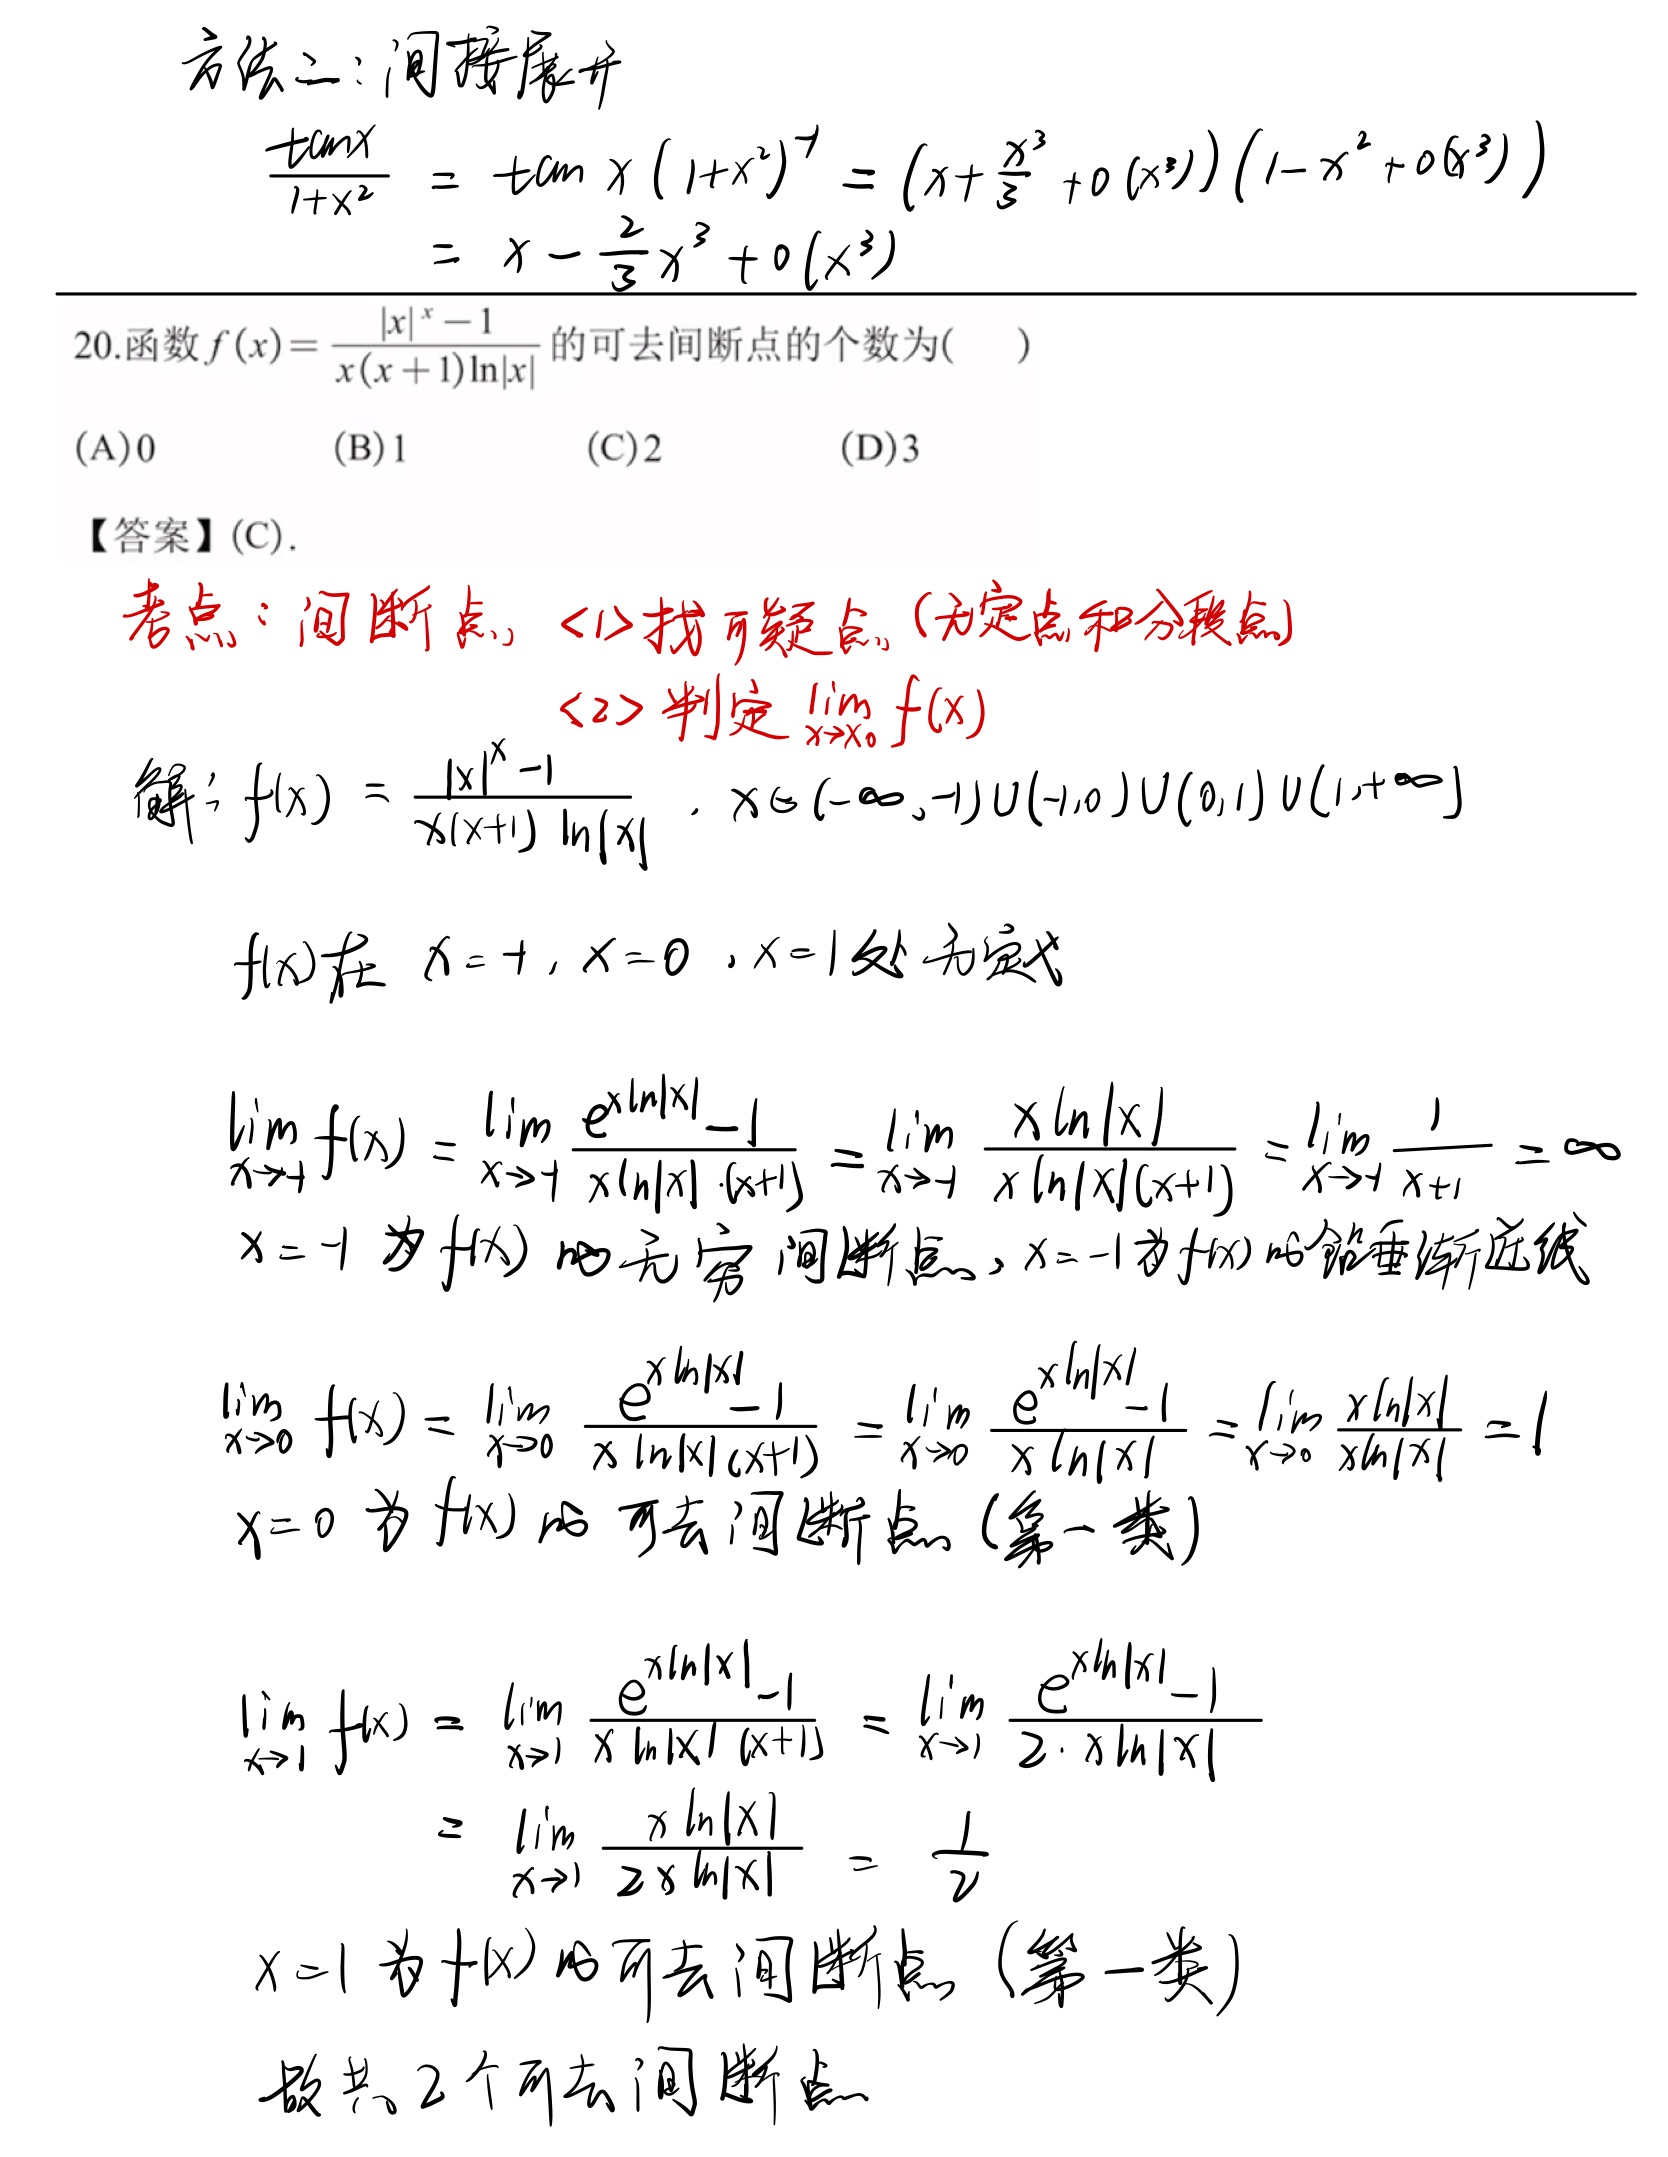 方法二：间接展开
tanx/(1+x²) = tan x (1+x²)⁻¹ = (x + x³/3 + o(x³))(1 - x² + o(x³))
= x - (2/3)x³ + o(x³)
20.函数 f(x) = (|x|ˣ - 1)/(x(x+1)ln|x|) 的可去间断点的个数为( )
(A)0 (B)1 (C)2 (D)3
【答案】(C).
考点：间断点 <1> 找可疑点 (无定点和分段点)
<2> 判定 lim_{x→x₀} f(x)
解: f(x) = (|x|ˣ - 1)/(x(x+1) ln|x|) , x∈(-∞,-1)∪(-1,0)∪(0,1)∪(1,+∞)
f(x)在 x=-1, x=0, x=1处无定义
lim_{x→-1} f(x) = lim_{x→-1} (e^{xln|x|} - 1)/(xln|x|·(x+1)) = lim_{x→-1} (xln|x|)/(xln|x|(x+1)) = lim_{x→-1} 1/(x+1) = ∞
x=-1 为 f(x) 的无穷间断点, x=-1为f(x)的铅垂渐近线
lim_{x→0} f(x) = lim_{x→0} (e^{xln|x|} - 1)/(xln|x|(x+1)) = lim_{x→0} (e^{xln|x|} - 1)/(xln|x|) = lim_{x→0} (xln|x|)/(xln|x|) = 1
x=0 为 f(x) 的可去间断点 (第一类)
lim_{x→1} f(x) = lim_{x→1} (e^{xln|x|} - 1)/(xln|x|(x+1)) = lim_{x→1} (e^{xln|x|} - 1)/(2·xln|x|)
= lim_{x→1} (xln|x|)/(2xln|x|) = 1/2
x=1 为f(x)的可去间断点 (第一类)
故共2个可去间断点